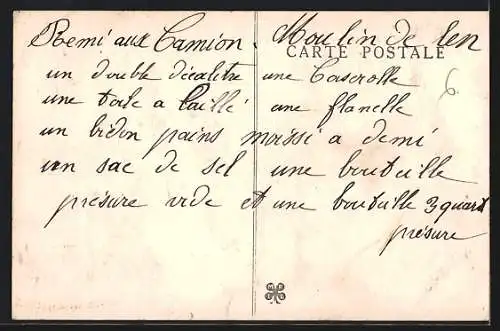 Remi aux Camion. Moulin de Len
CARTE POSTALE
un double décalitre une Caserolle
6
une toile a Caillé une flanelle
un bidon pains moissi a demi
un sac de sel une bouteille
présure vide et une bouteille 3 quart
présure